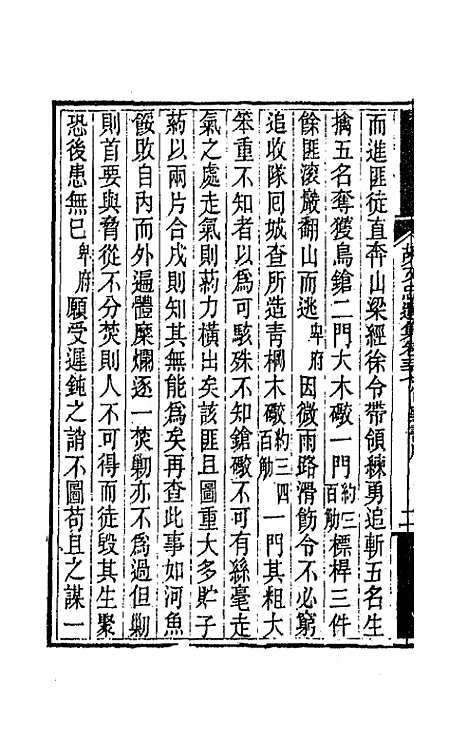 而進匪徒直奔山梁經徐令帶領練勇追斬五名生
擒五名奪獲鳥鎗二門大木礮一門約三百觔標桿三件
餘匪滾巖翻山而逃卑府因微雨路滑飭令不必窮
追收隊囘城查所造青㭎木礮約三四百觔一門其粗大
笨重不知者以爲可駭殊不知鎗礮不可有絲毫走
氣之處走氣則葯力橫出矣該匪且圖重大多貯子
葯以兩片合成則知其無能爲矣再查此事如河魚
餒敗自內而外遍體糜爛逐一焚勦亦不爲過但勦
則首要與脅從不分焚則人不可得而徒毀其生聚
恐後患無已卑府願受遲鈍之誚不圖苟且之謀一
胡文忠遺集卷